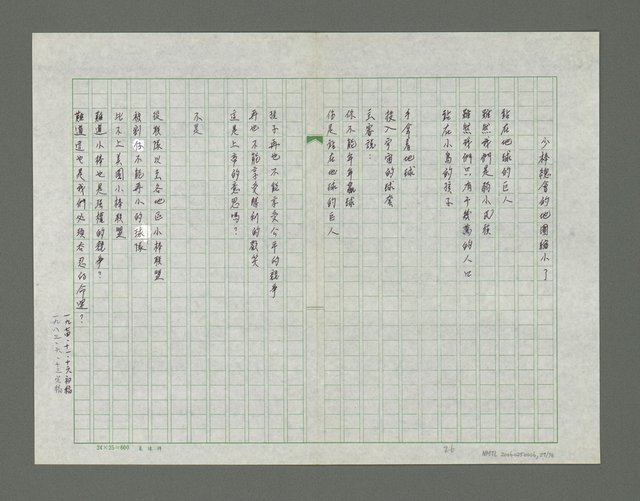 少棒總會的地圖縮小了
站在地球的巨人
雖然我們是弱小民族
雖然我們只有千幾萬的人口
站在小島的孩子
手拿著地球
投入宇宙的球賽
主審說：
你不能年年贏球
你是站在地球的巨人
孩子再也不能享受公平的競爭
再也不能享受勝利的歡笑
這是上帝的意思嗎？
不是
從聯隊以至各地區小棒聯盟
被劃分不能再小的球隊
比不上美國小棒聯盟
難道小棒也是強權的競爭？
難道這也是我們必須吞忍的命運？
一九七四、十一、十六初稿
一九八二、六、十三完稿
24×25=600
26
NMTL 20060250006, 27/76